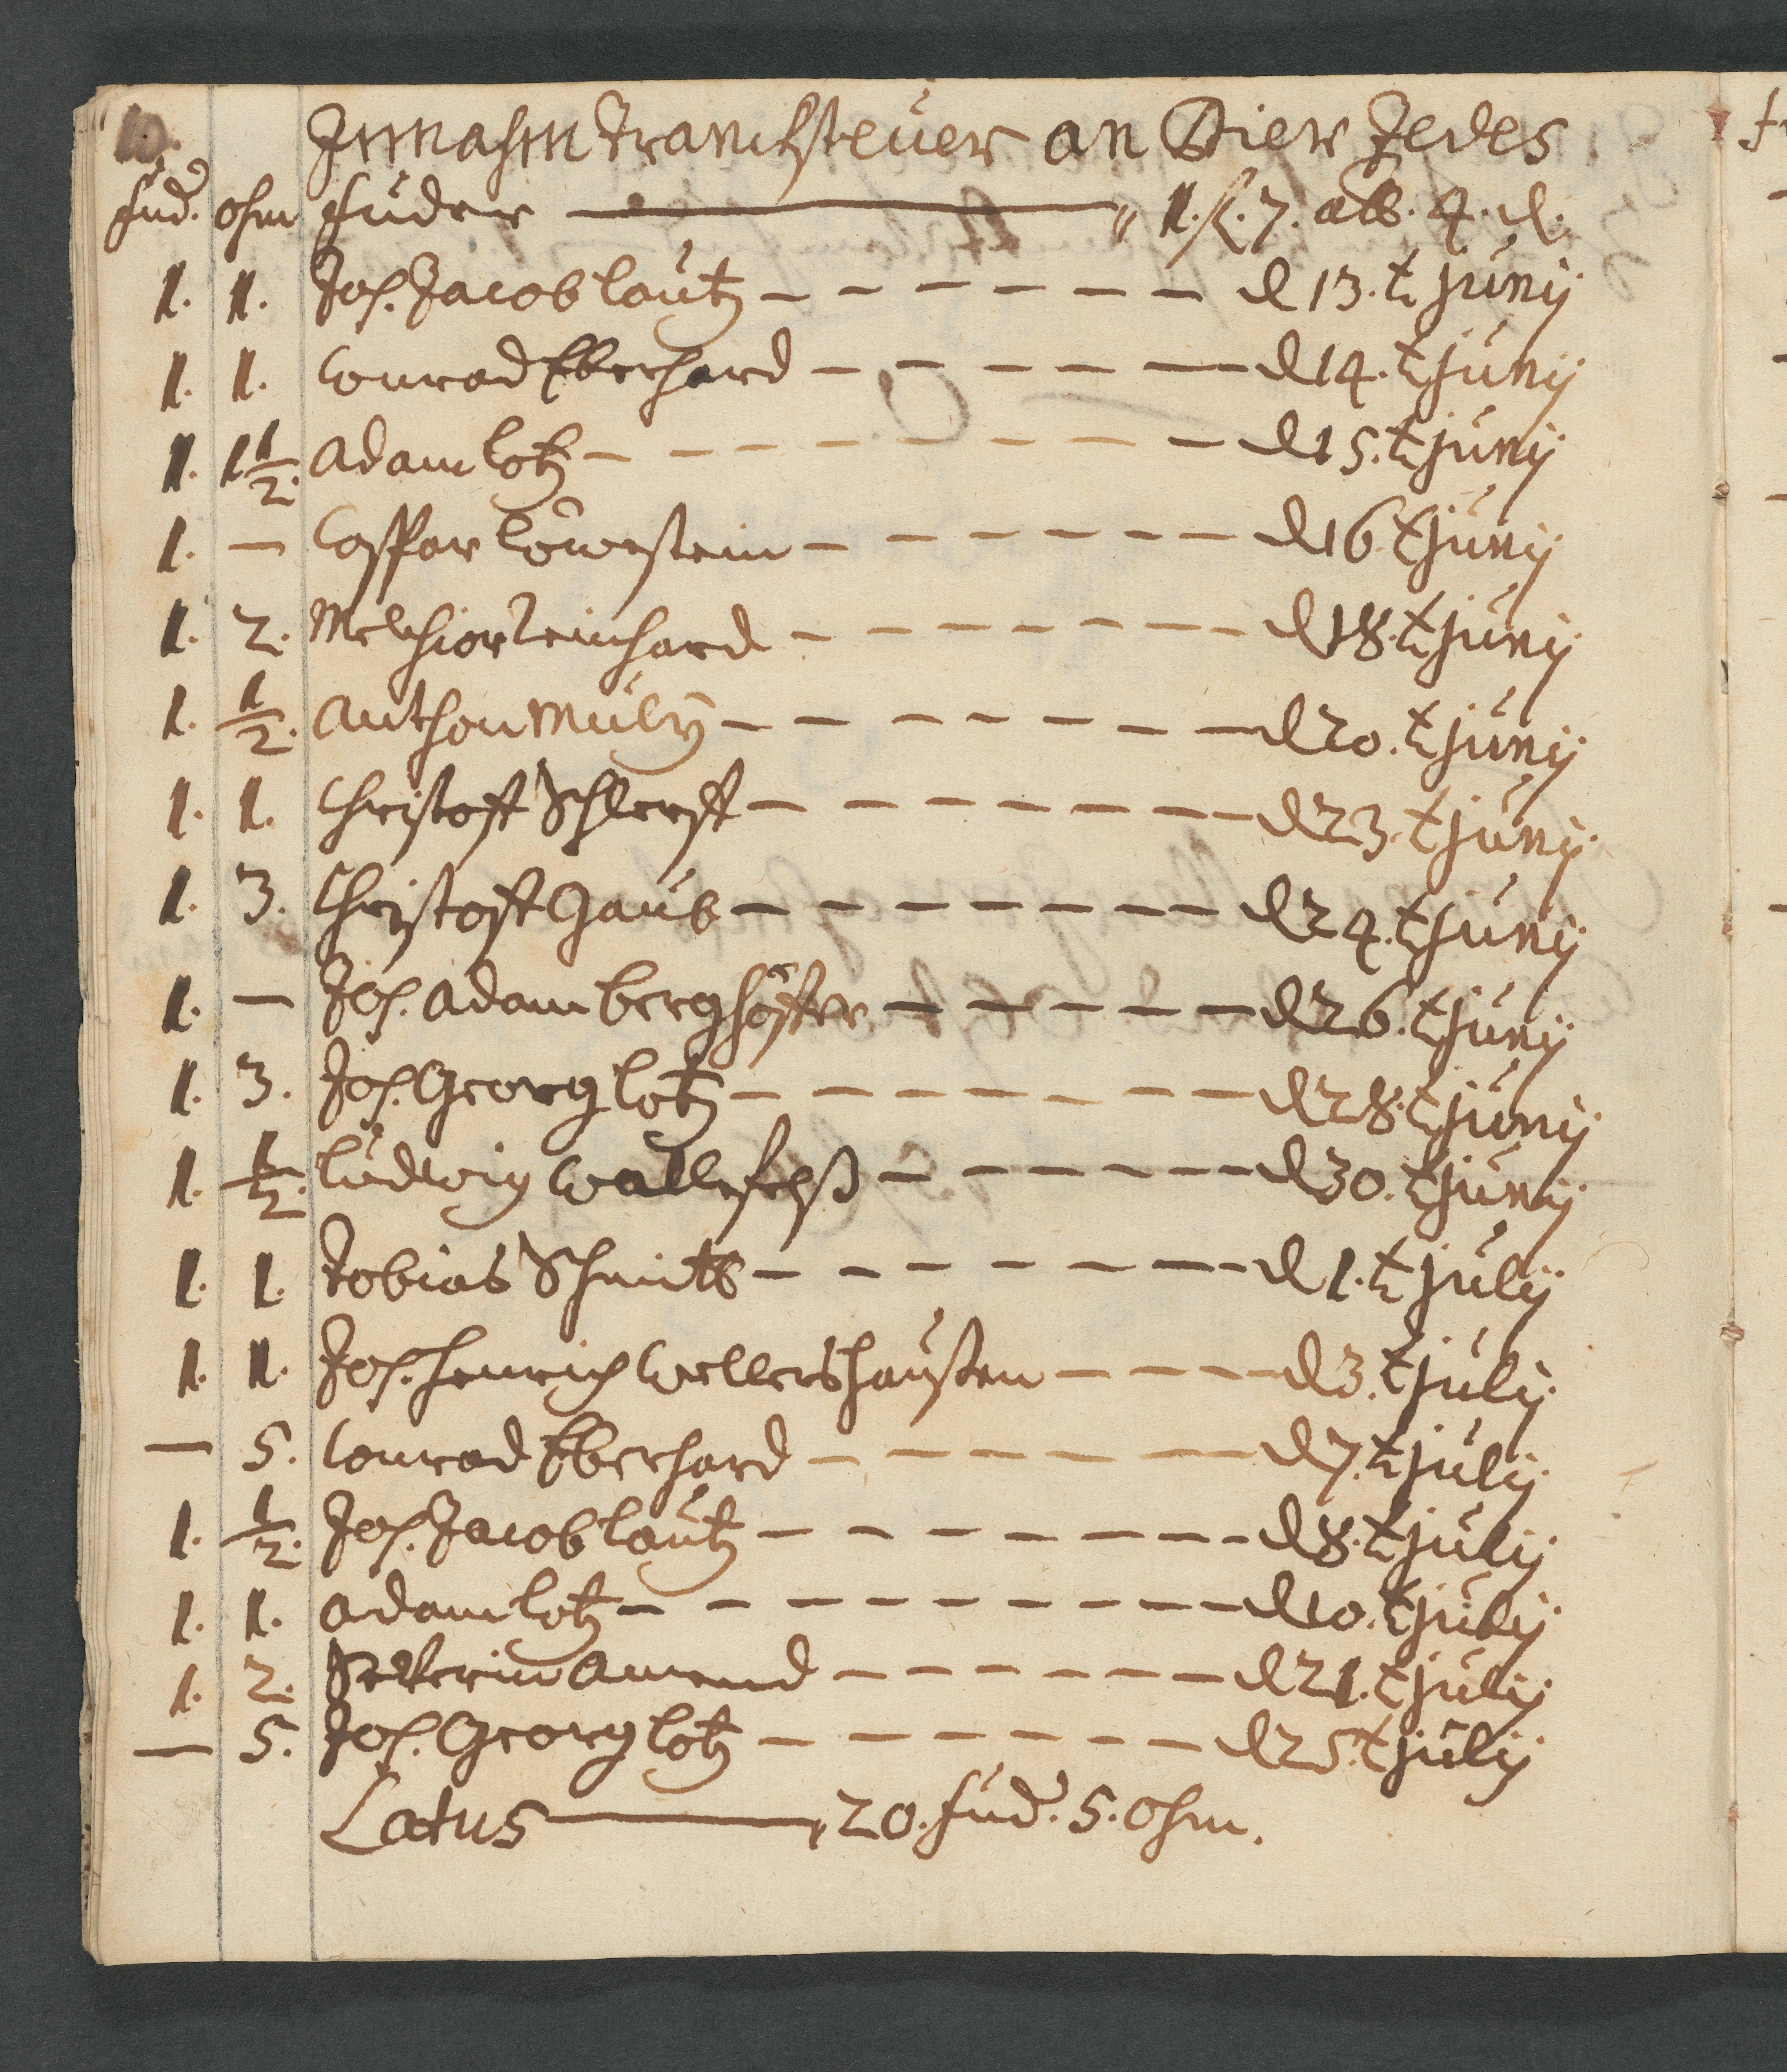 10.
Innahm trancksteüer an Bier Jedes
füd. ohm füder — 1. fl. 7. alb. 4. d.
1. 1. Joh. Jacob lautz — — — — — — d 13.t Junij
1. 1. Conrad Eberhard — — — — — d 14.t Junij
1. 1 1/2. Adam lotz — — — — — — — d 15.t Junij
1. — Casspar Löwestein — — — — — — d 16.t Junij
1. 2. Melchior Reinhard — — — — — — d 18.t Junij
1. 1/2. Anthon Müly — — — — — — d 20.t Junij
1. 1. Christoff Schlerfft — — — — — — d 23.t Junij
1. 3. Christoff Gaub — — — — — — d 24.t Junij
1. — Joh. Adam berghöffer — — — — — d 26.t Junij
1. 3. Joh. Georg lotz — — — — — — d 28.t Junij
1. 1/2. Ludwig Wallefelß — — — — — d 30.t Junij
1. 1. Tobias Schmitt — — — — — — d 1.t Julij
1. 1. Joh. Henrich Wellershausten — — — d 3.t Julij
— 5. Conrad Eberhard — — — — — d 7.t Julij
1. 1/2. Joh. Jacob lautz — — — — — — d 8.t Julij
1. 1. Adam lotz — — — — — — — d 10.t Julij
1. 2. Severin Amend — — — — — d 21.t Julij
— 5. Joh. Georg lotz — — — — — — d 25.t Julij
Latus — 20. füd. 5. ohm.